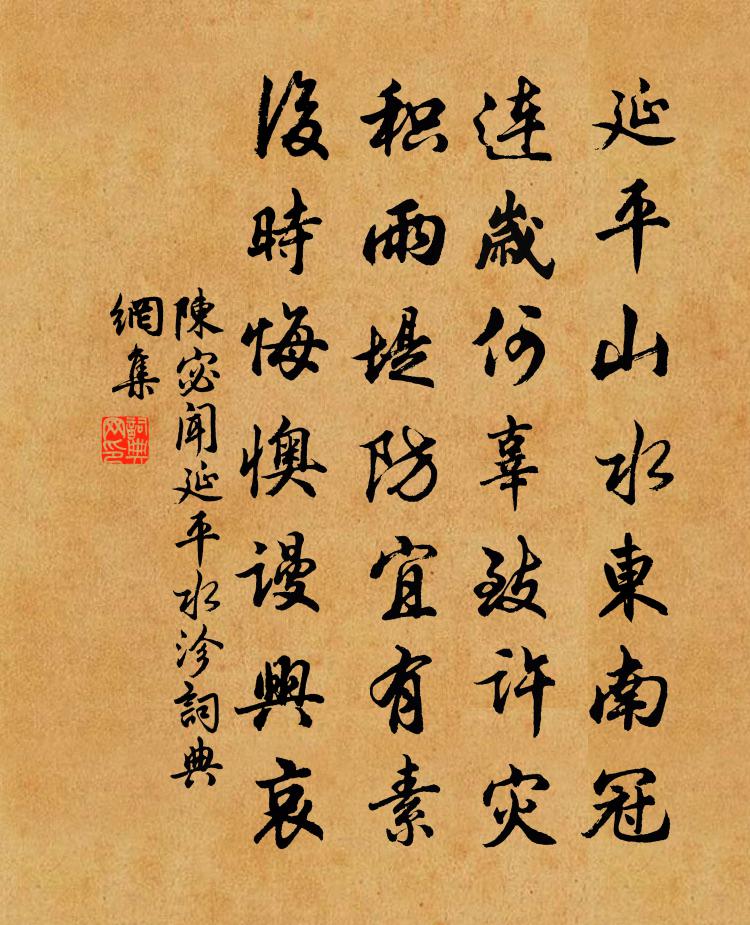 延平山水東南冠
連歲何辜致許灾
积雨堤防宜有素
後時悔懊谩興哀
陳宓闻延平水沴詞典
網集
詞典
网印